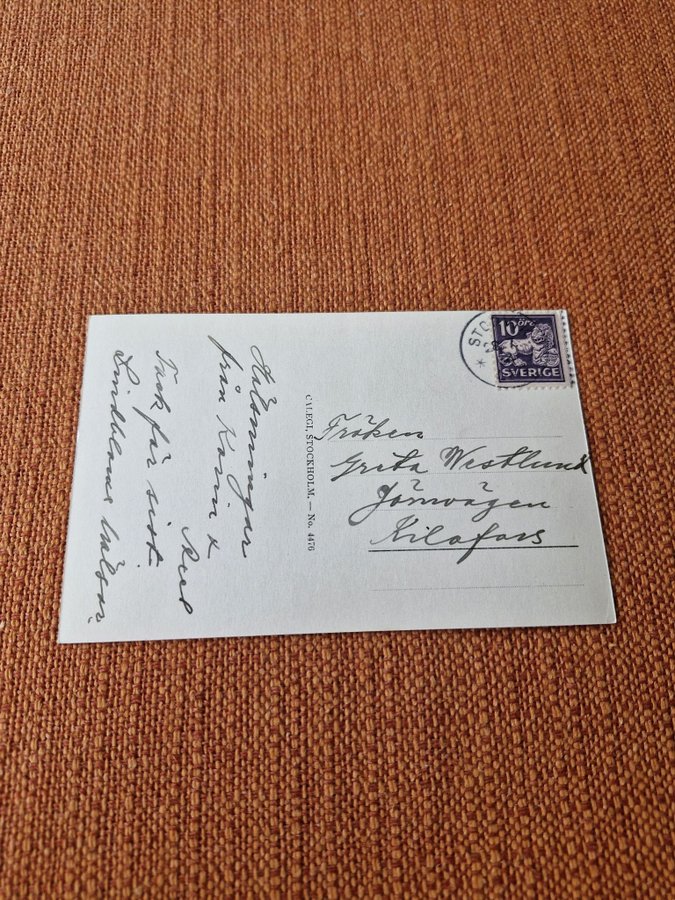 Hälsningar
från Karin &
Axel
Tack för sist.
Lindbloms hälsar.
CALEGI, STOCKHOLM. — No. 4476
STOC
10 öre
SVERIGE
Fröken
Greta Westlund
Järnvägen
Kilafors